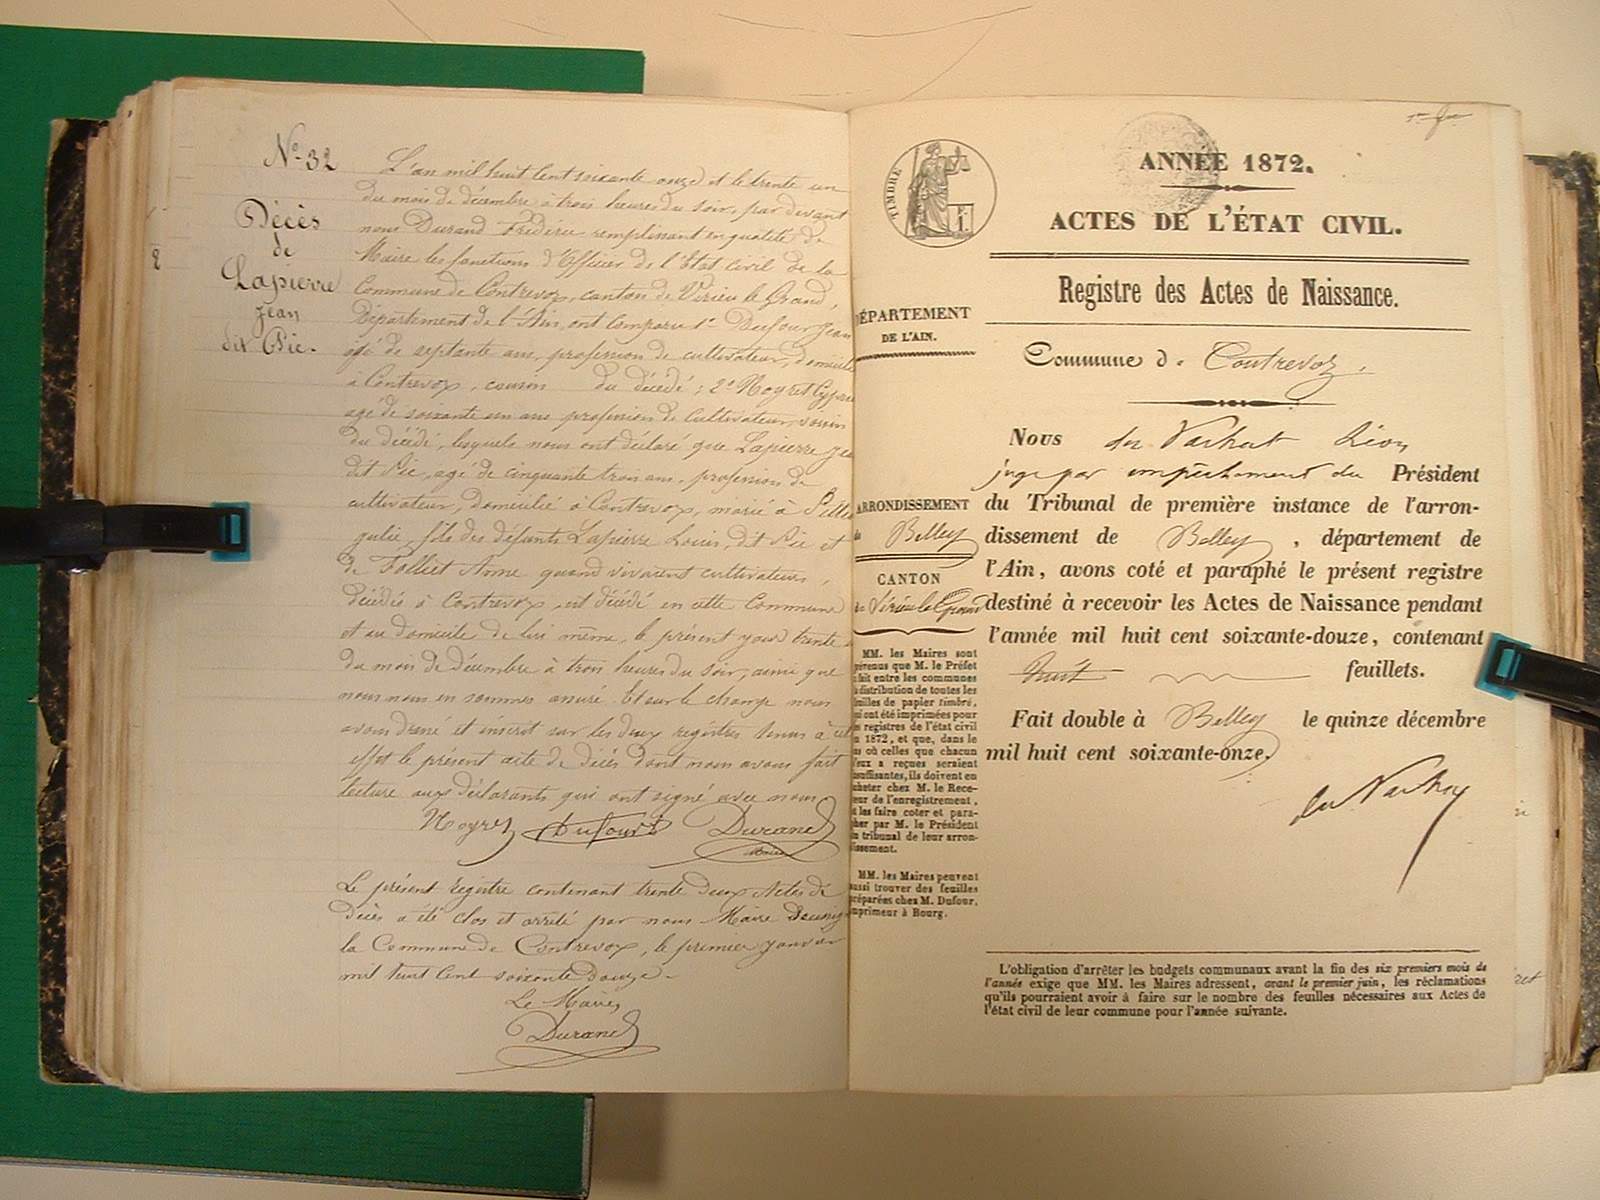 N° 32
Décès
de
Lapierre
Jean
dit Pic.
L'an mil huit cent soixante onze et le trente un
du mois de décembre à trois heures du soir, par devant
nous Durand Frédéric remplissant en qualité de
Maire les fonctions d'Officier de l'Etat Civil de la
Commune de Contrevoz, canton de Virieu le Grand,
Département de l'Ain, ont comparu 1° Dufour Jean
âgé de septante ans, profession de cultivateur, domicilié
à Contrevoz, cousin du décédé ; 2° Noyret
agé de soixante un ans profession de cultivateur, voisin
du décédé, lesquels nous ont déclaré que Lapierre Jean
dit Pic, agé de cinquante trois ans, profession de
cultivateur, domicilié à Contrevoz, marié à
Julie, fils des défunts Lapierre Louis, dit Pic et
de Falliet Anne quand vivaient cultivateurs,
décédés à Contrevoz, est décédé en cette Commune
et au domicile de lui même, le présent jour trente
du mois de décembre à trois heures du soir, ainsi que
nous nous en sommes assuré. Et sur le champ nous
avons dressé et inscrit sur les deux registres tenus à cet
effet le présent acte de décès dont nous avons fait
lecture aux déclarants qui ont signé avec nous
Noyret Dufour Durand
Maire
Le présent registre contenant trente deux Actes de
Décès a été clos et arrêté par nous Maire soussigné
la Commune de Contrevoz, le premier janvier
mil huit cent soixante douze.
Le Maire,
Durand
TIMBRE
ANNÉE 1872.
ACTES DE L'ÉTAT CIVIL.
Registre des Actes de Naissance.
DÉPARTEMENT
DE L'AIN.
Commune de Contrevoz.
Nous du Vachat Léon
juge par empêchement du Président
du Tribunal de première instance de l'arron-
dissement de Belley, département de
l'Ain, avons coté et paraphé le présent registre
destiné à recevoir les Actes de Naissance pendant
l'année mil huit cent soixante-douze, contenant
huit feuillets.
Fait double à Belley le quinze décembre
mil huit cent soixante-onze.
du Vachat
ARRONDISSEMENT
de Belley
CANTON
de Virieu le Grand
MM. les Maires sont
prévenus que M. le Préfet
a fait entre les communes
la distribution de toutes les
feuilles de papier timbré,
qui ont été imprimées pour
les registres de l'état civil
en 1872, et que, dans le
cas où celles que chacun
d'eux a reçues seraient
insuffisantes, ils doivent en
acheter chez M. le Rece-
veur de l'enregistrement,
et les faire coter et para-
pher par M. le Président
du tribunal de leur arron-
dissement.
MM. les Maires peuvent
aussi trouver des feuilles
préparées chez M. Dufour,
imprimeur à Bourg.
L'obligation d'arrêter les budgets communaux avant la fin des six premiers mois de
l'année exige que MM. les Maires adressent, avant le premier juin, les réclamations
qu'ils pourraient avoir à faire sur le nombre des feuilles nécessaires aux Actes de
l'état civil de leur commune pour l'année suivante.